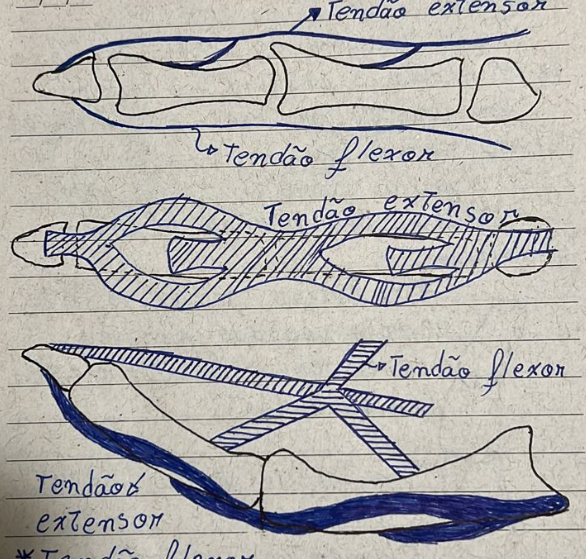 Tendão extensor
Tendão flexor
Tendão extensor
Tendão flexor
Tendão
extensor
* Tendão flexor